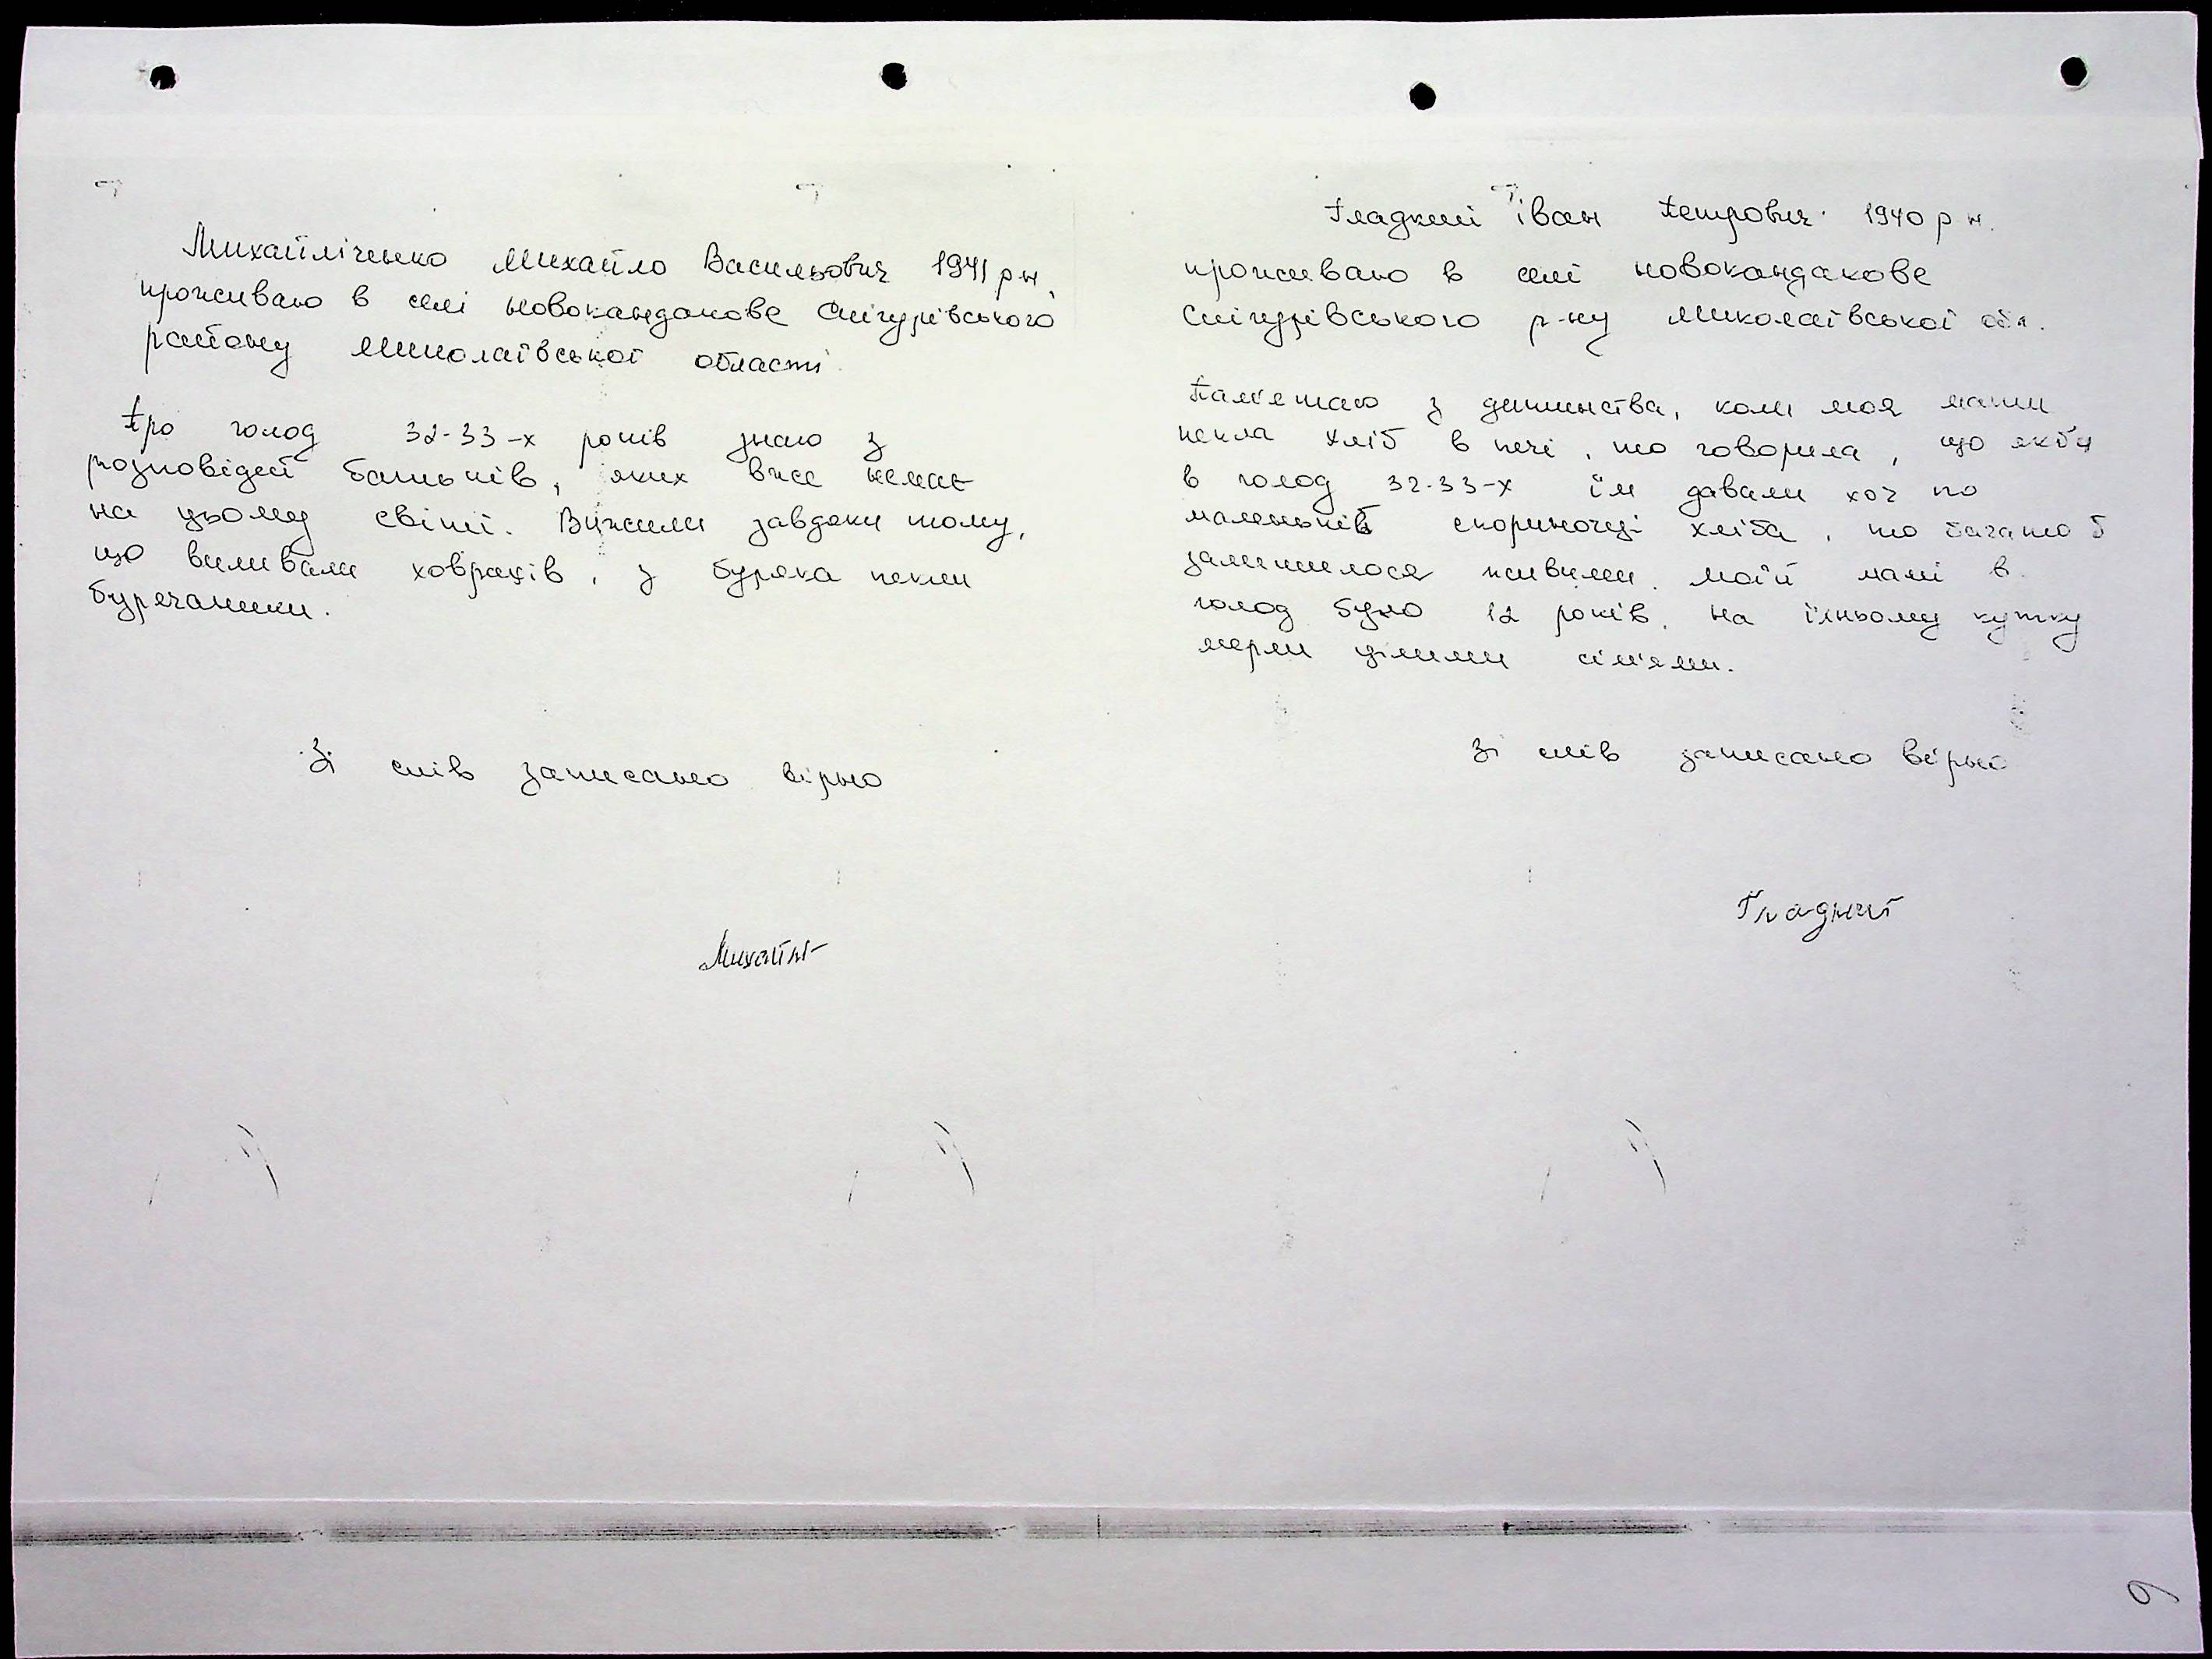 Михайліченко Михайло Васильович 1941 р н,
проживаю в селі Новокандакове Снігурівського
району Миколаївської області.
Про голод 32-33-х років знаю з
розповідей батьків, яких вже немає
на цьому світі. Вижили завдяки тому,
що виливали ховрахів, з буряка пекли
бурячаники.
Зі слів записано вірно
Гладкий Іван Петрович 1940 р н.
проживаю в селі Новокандакове
Снігурівського р-ну Миколаївської обл.
Пам'ятаю з дитинства, коли моя мати
пекла хліб в печі, то говорила, що якби
в голод 32-33-х їм давали хоч по
маленькій скориночці хліба, то багато б
залишилося живими. Моїй мамі в
голод було 12 років. На їхньому кутку
мерли цілими сім'ями.
Зі слів записано вірно
Гладкий